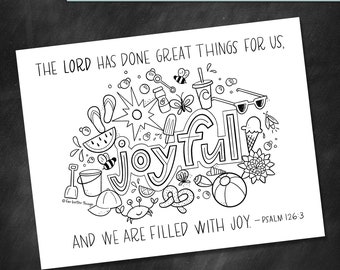 THE LORD HAS DONE GREAT THINGS FOR US,
joyful
© far better things
AND WE ARE FILLED WITH JOY. – PSALM 126:3